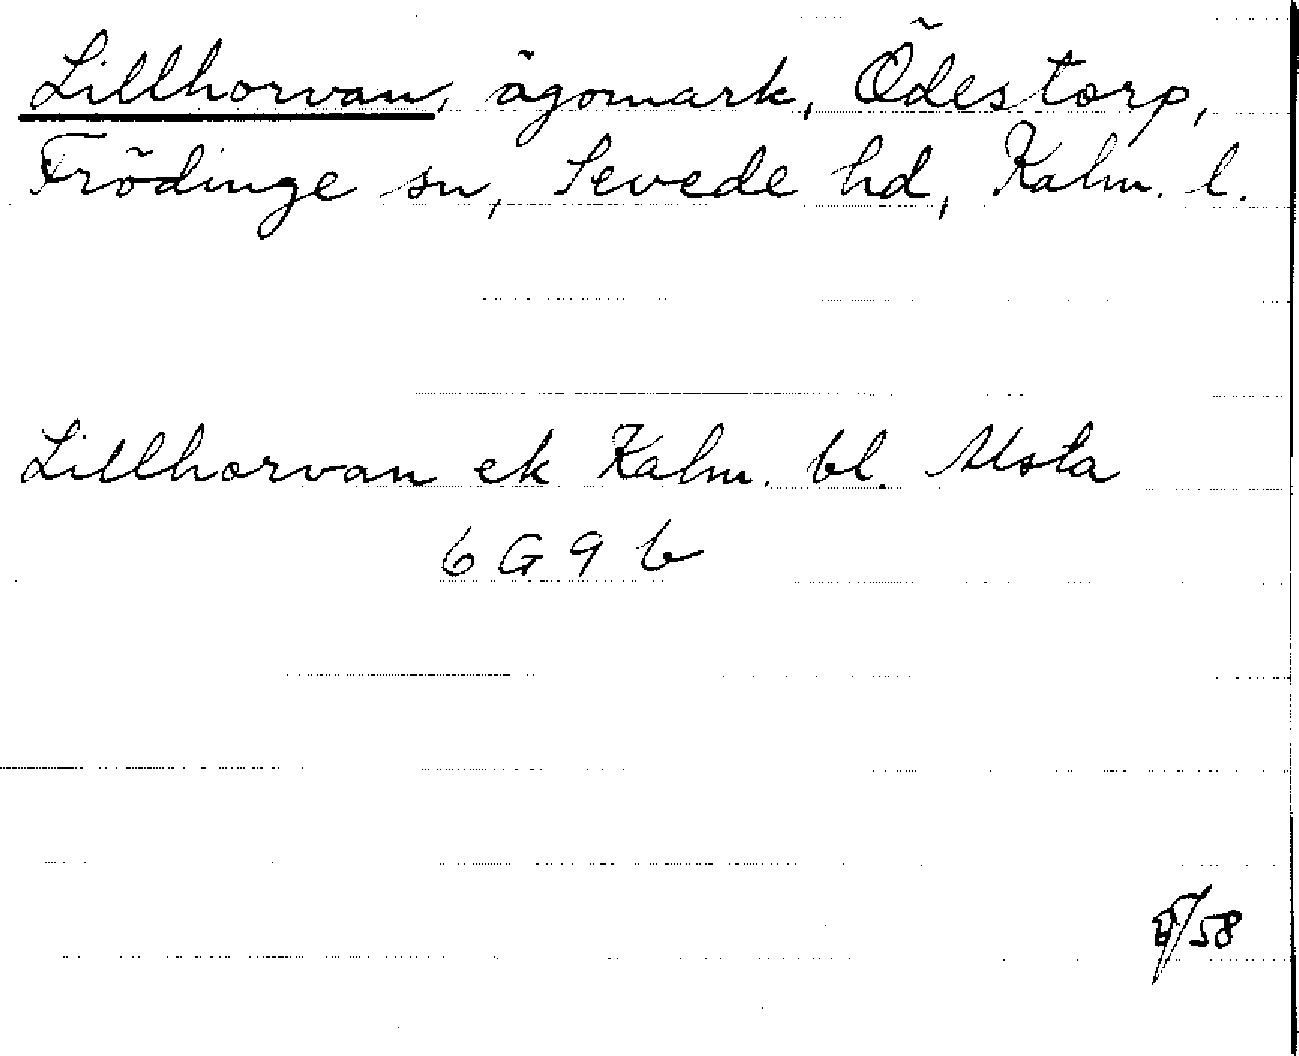 Lillhorvan, ägomark, Ödestorp,
Frödinge sn, Sevede hd, Kalm. l.
Lillhorvan ek Kalm. bl. Msta
6 G 9 b
/58